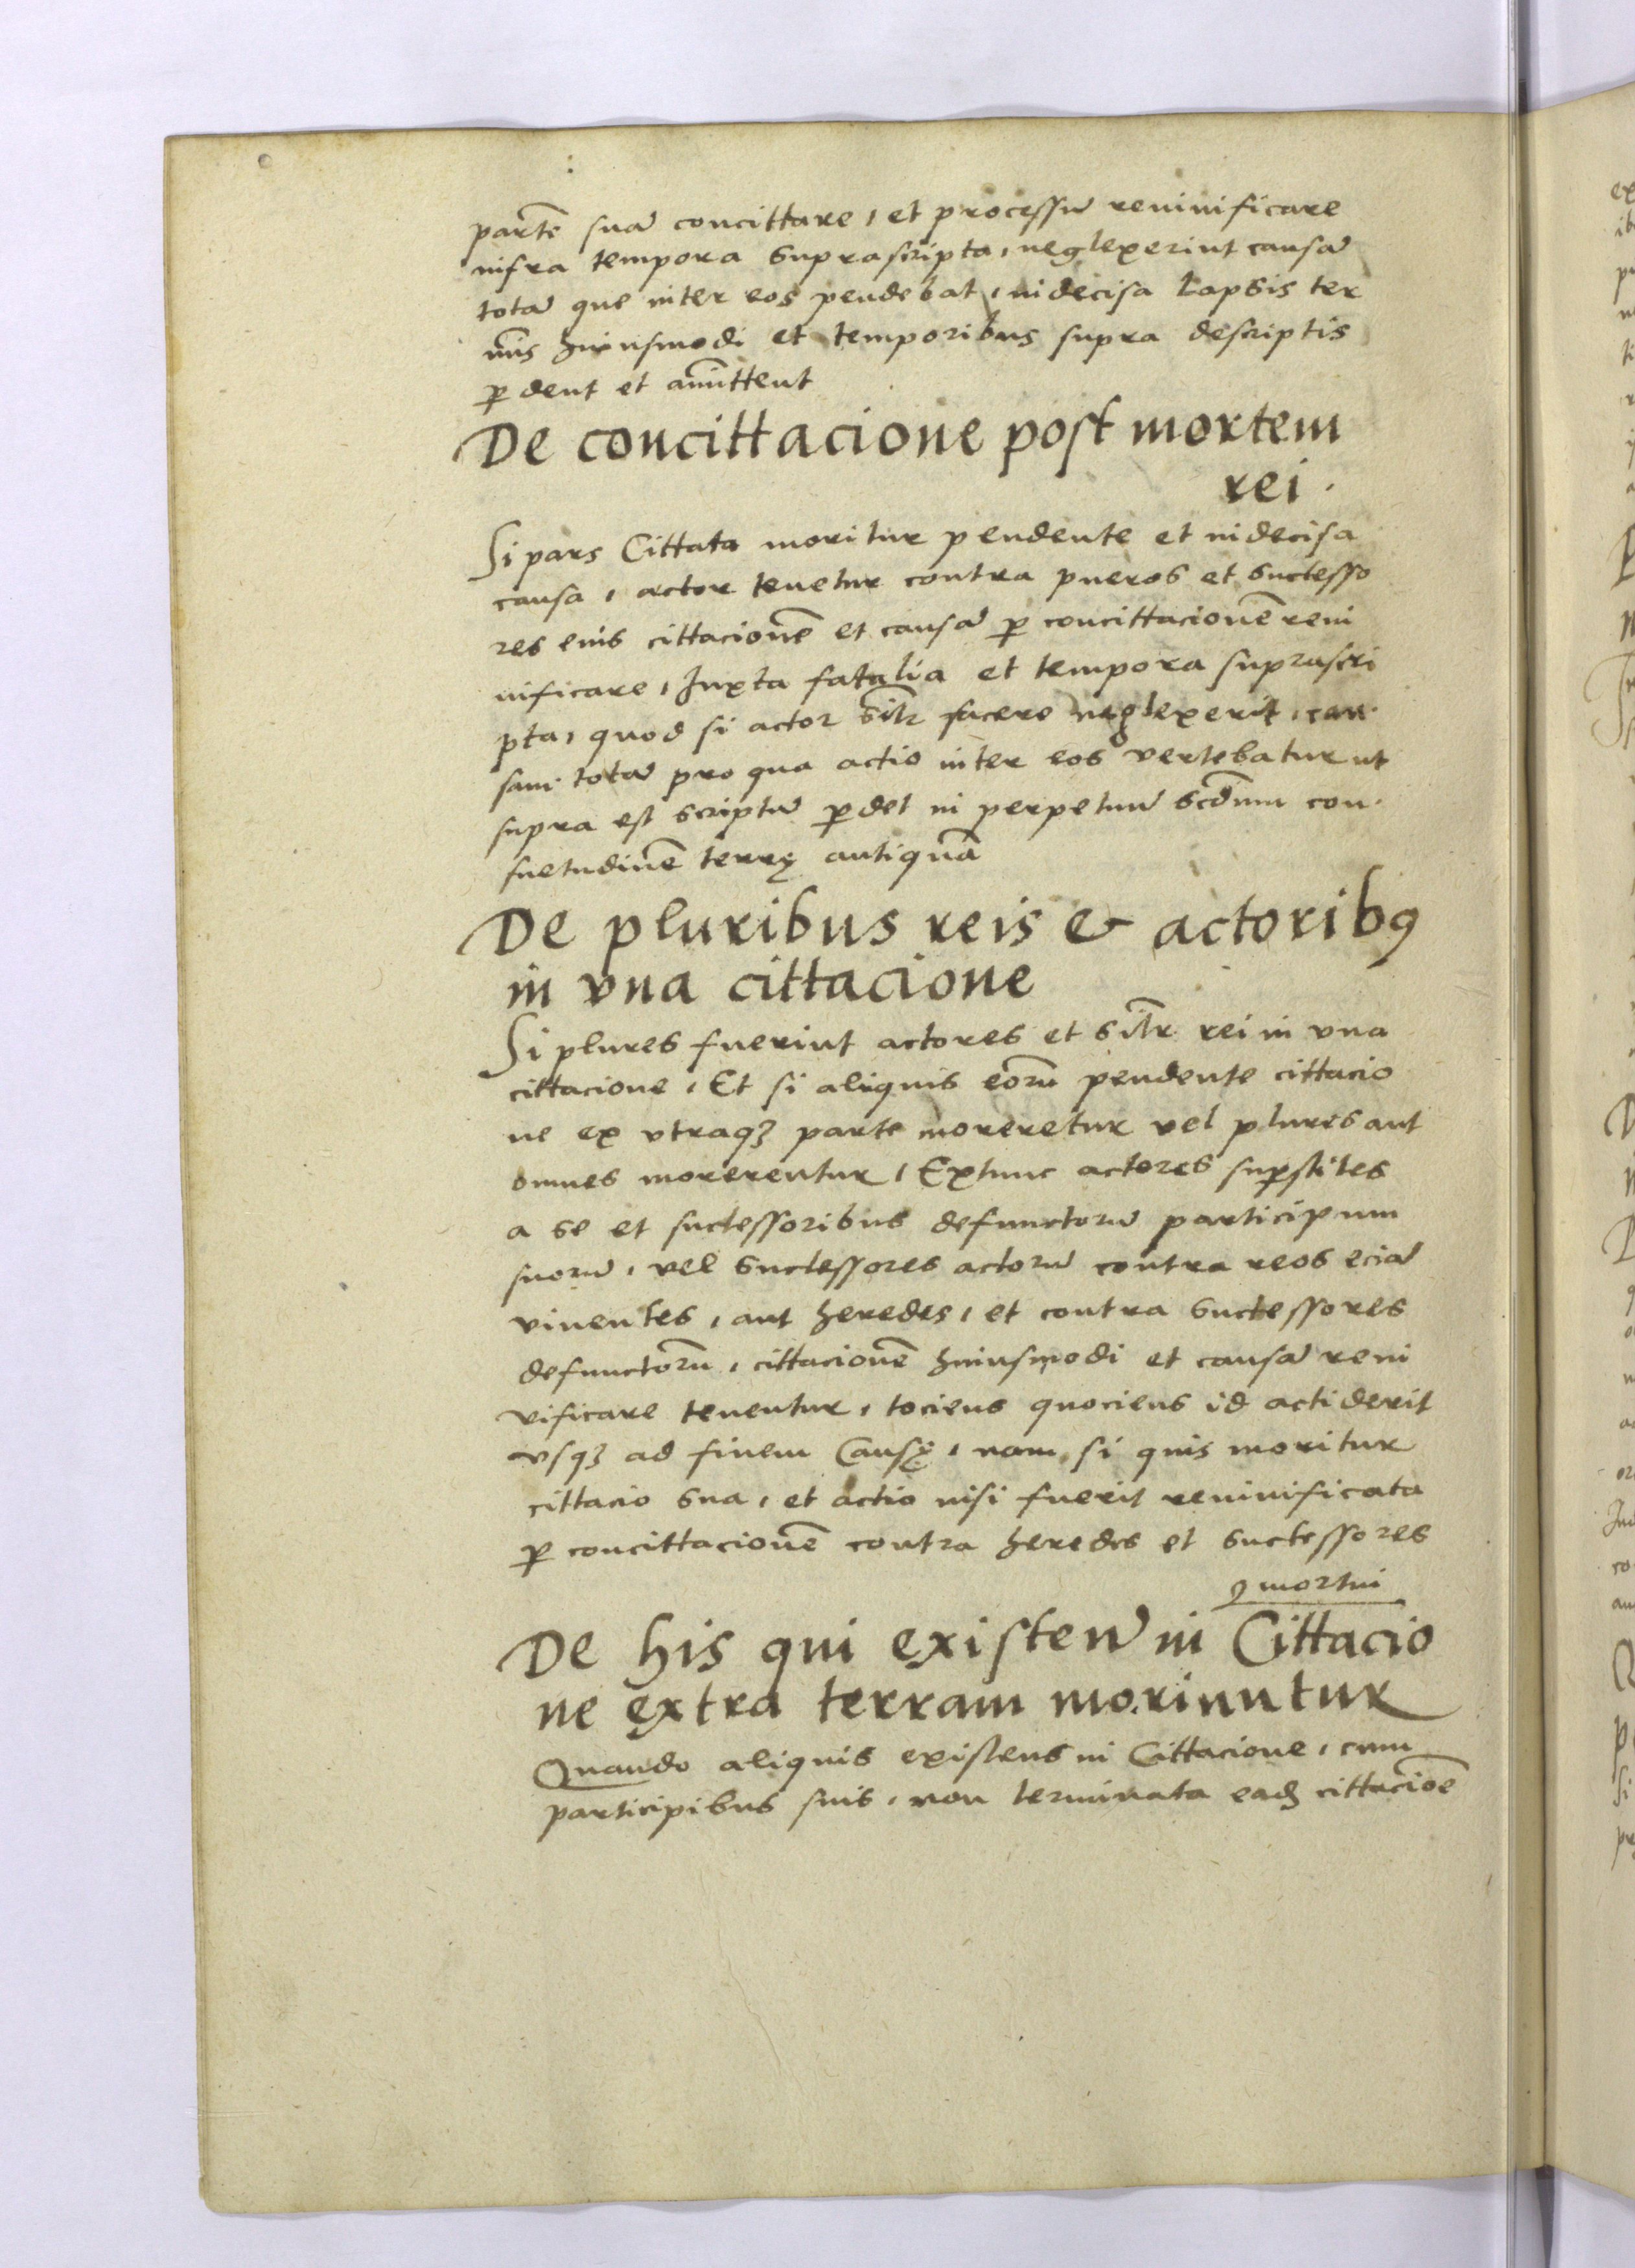 partē suā concittare, et processū reuiuificare
infra tempora suprascripta, neglexerint causā
totā que inter eos pendebat, indecisa Lapsis ter
mīs huiusmodi et temporibus supra descriptis
ꝑdent et amīttent
De concittacione post mortem
rei.
Si pars Cittata moritur pendente et indecisa
causa, actor tenetur contra pueros et successo
res eius cittacionē et causā ꝑ concittacionē reui
uificare, Iuxta fatalia et tempora suprascri
pta, quod si actor sīlr facere neglexerit, cau
sam totā pro qua actio inter eos vertebatur ut
supra est scriptū ꝑdet in perpetuū scd̄um con
suetudinē terrę antiquā
De pluribus reis & actoribꝯ
in vna cittacione
Si plures fuerint actores et sīlr rei in vna
cittacione, Et si aliquis eorū pendente cittacio
ne ex vtraqꝫ parte moreretur vel plures aut
omnes morerentur, Extunc actores suꝑstites
a se et successoribus defunctorū participum
suorū, vel successores actorū contra reos eciā
viuentes, aut heredes, et contra successores
defunctorū, cittacionē huiusmodi et causā reui
vificare tenentur, tociens quociens id acciderit
vsqꝫ ad finem Causę, nam si quis moritur
cittacio sua, et actio nisi fuerit reuiuificata
ꝑ concittacionē contra heredes et successores
ꝯmortui
De his qui existen̄ in Cittacio
ne extra terram moriuntur
Quando aliquis existens in Cittacione, cum
participibus suis, non terminata eadꝫ cittaciōe